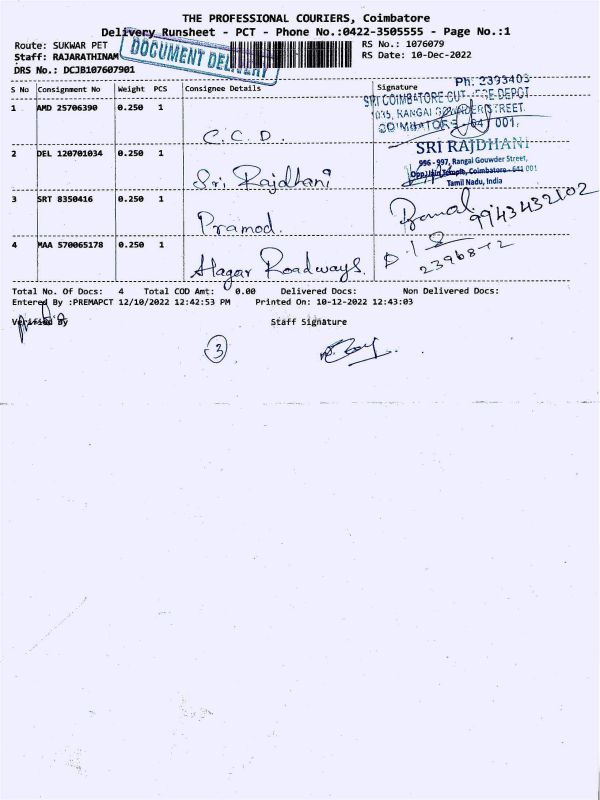 THE PROFESSIONAL COURIERS, Coimbatore
Delivery Runsheet - PCT - Phone No.:0422-3505555 - Page No.:1
Route: SUKWAR PET RS No.: 1076079
Staff: RAJARATHINAM DOCUMENT DELIVERY RS Date: 10-Dec-2022
DRS No.: DCJB107607901
S No Consignment No Weight PCS Consignee Details Signature
Ph: 2393403
1 AMD 25706390 0.250 1
1035, RANGAI GOWDER STREET.
C.C.D. COIMBATORE - 641 001.
SRI RAJDHANI
2 DEL 120701034 0.250 1 996 - 997, Rangai Gouwder Street,
Sri Rajdhani Opp. Jain Temple, Coimbatore - 641 001
Tamil Nadu, India
3 SRT 8350416 0.250 1
Pramod. 9943432102
4 MAA 570065178 0.250 1
Alagar Roadways.
Total No. Of Docs: 4 Total COD Amt: 0.00 Delivered Docs: Non Delivered Docs:
Entered By :PREMAPCT 12/10/2022 12:42:53 PM Printed On: 10-12-2022 12:43:03
Verified By Staff Signature
3